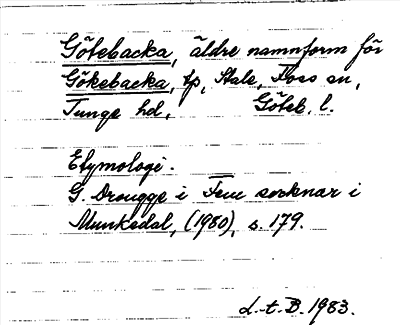 Götebacka, äldre namnform för
Gökebacka, tp, Stale, Foss sn,
Tunge hd, Göteb. l.
Etymologi.
G. Drougge i Fem socknar i
Munkedal, (1980), s. 179.
d.-t. B. 1983.